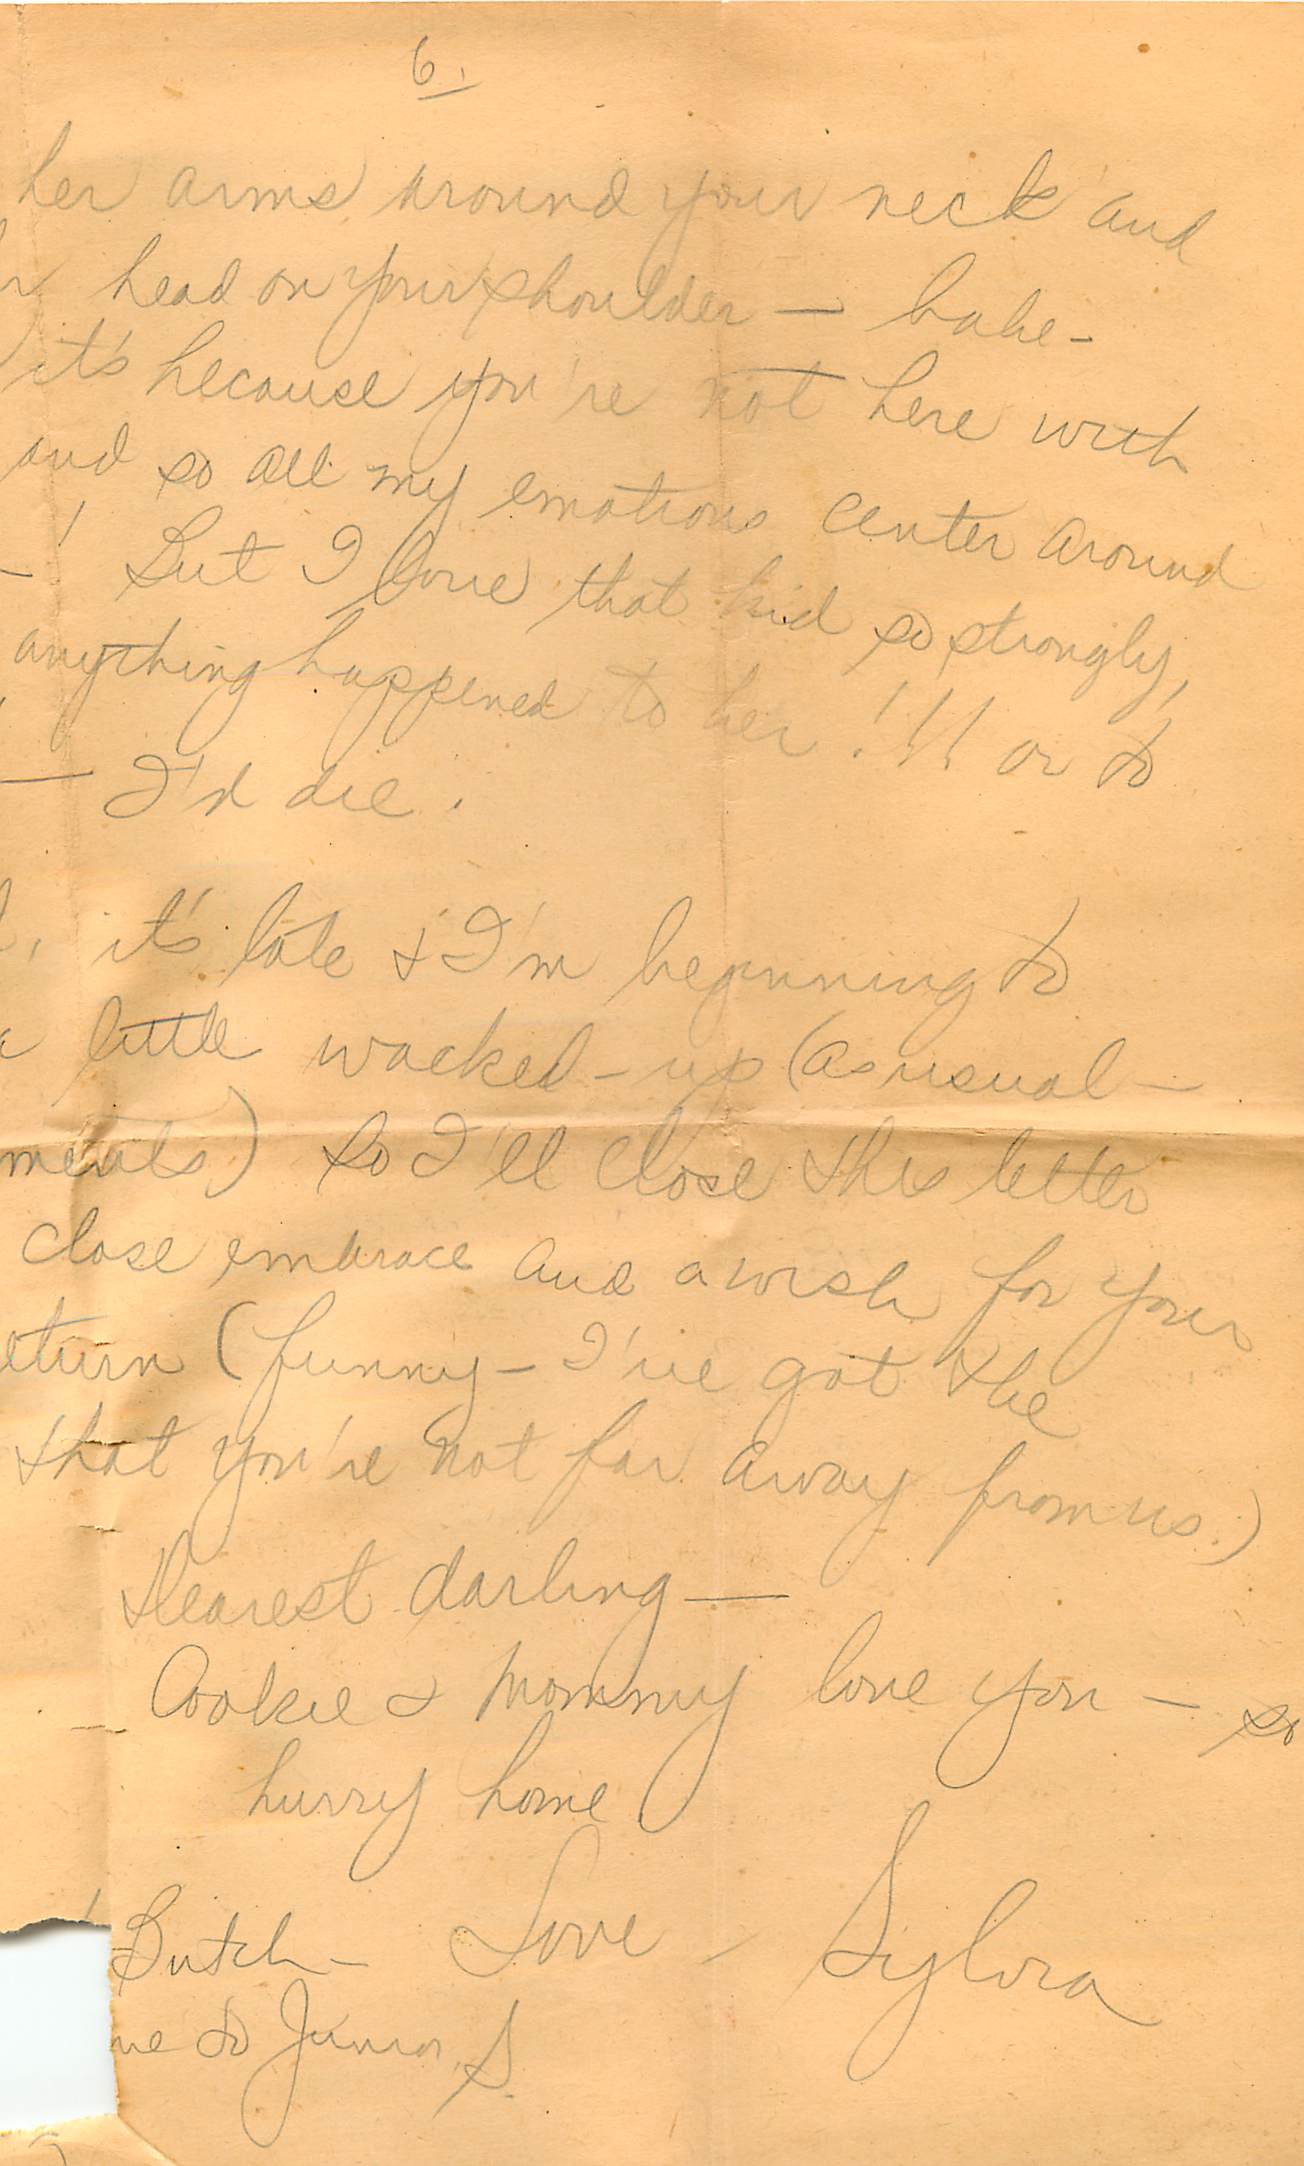 6.
her arms around your neck and
head on your shoulder — babe-
it's because you're not here with
and so all my emotions center around
— ! But I love that kid so strongly,
anything happened to her!!! or to
— I'd die.
it's late & I'm beginning to
a little wacked-up (as usual —
ments) so I'll close this letter
close embrace and a wish for your
eturn (funny - I've got the
that you're not far away from us.)
Dearest darling —
Cookie & Mommy love you — so
hurry home
Butch - Love - Sylvia
ve to Junior. S.